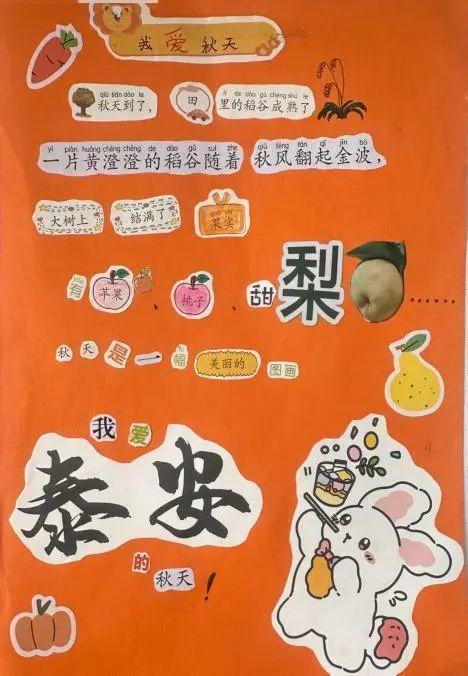 我爱秋天
qiū tiān dào le
秋天到了，
田
lǐ de dào gǔ chéng shú le
里的稻谷成熟了
yí piàn huáng chéng chéng de dào gǔ suí zhe
一片黄澄澄的稻谷随着
qiū fēng fān qǐ jīn bō
秋风翻起金波，
大树上 结满了 果实
yǒu
有 苹果、桃子、甜梨……
秋天是一幅美丽的图画
我爱
泰安
的
秋天！